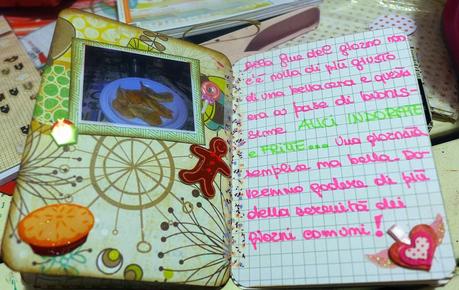 Della fine del giorno non
c'è nulla di più giusto
di una bella cena e questa
sera a base di buonis-
sime ALICI INDORATE
e FRITTE... Una giornata
semplice ma bella. Do-
vremmo godere di più
della serenità dei
giorni comuni!